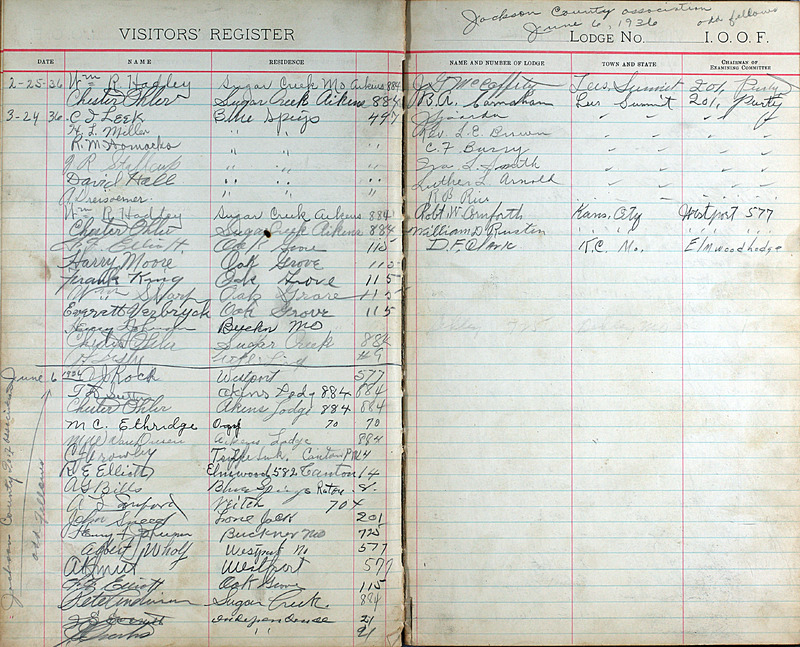 VISITORS' REGISTER
DATE NAME RESIDENCE
2-25-36 Wm R Hadley Sugar Creek Mo Aikens 884
Chester Ohler Sugar Creek Aikens 884
3-24 36 C I Leek Blue Spigs 497
H. L. Miller " "
R. M. " "
" "
David Hall " "
" "
Wm R Hadley Sugar Creek Aikens 884
Chester Ohler Sugar Creek Aikens 884
Elliott Oak Grove 115
Harry Moore Oak Grove 115
Frank King Oak Grove 115
Wm Sharp Oak Grove 115
Everett Vezbryck Oak Grove 115
Henry Johnson Buckn Mo
Chester Ohler Sugar Creek 884
#9
June 6 1936 J Rock Westport 577
Akins Lodg 884 884
Chester Ohler Akins Lodg 884 884
M C. Ethridge 70 70
Van Dusen Aikens Lodge 884
Crowley Canton 4
R E Elliott Elmwood 582 Canton 14
A G Bills Blue Springs
704
John Sneed Lone Jack 201
Henry F Buckner Mo 725
Albert J Wholf Westport Mo 577
Westport 577
Elliott Oak Grove 115
Pete Anderson Sugar Creek. 884
J S Everett Independence 21
" 21
Jackson County association
odd fellows
Jackson County association
June 6, 1936 odd fellows
LODGE NO. I. O. O. F.
NAME AND NUMBER OF LODGE TOWN AND STATE CHAIRMAN OF EXAMINING COMMITTEE
J. T. McCafferty Lees Summit 201 Party
B. A. Carnahan Lees Summit 201, Party
" " "
Rev. L. E. Brown " " "
C. F. Barry " " "
Eva L. Smith " " "
Luther L. Arnold " " "
R B Rice " " "
Robt W. Cornforth Kans. City Westport 577
William D Ruston " " " "
D. F. Clark K.C. Mo. Elmwood Lodge